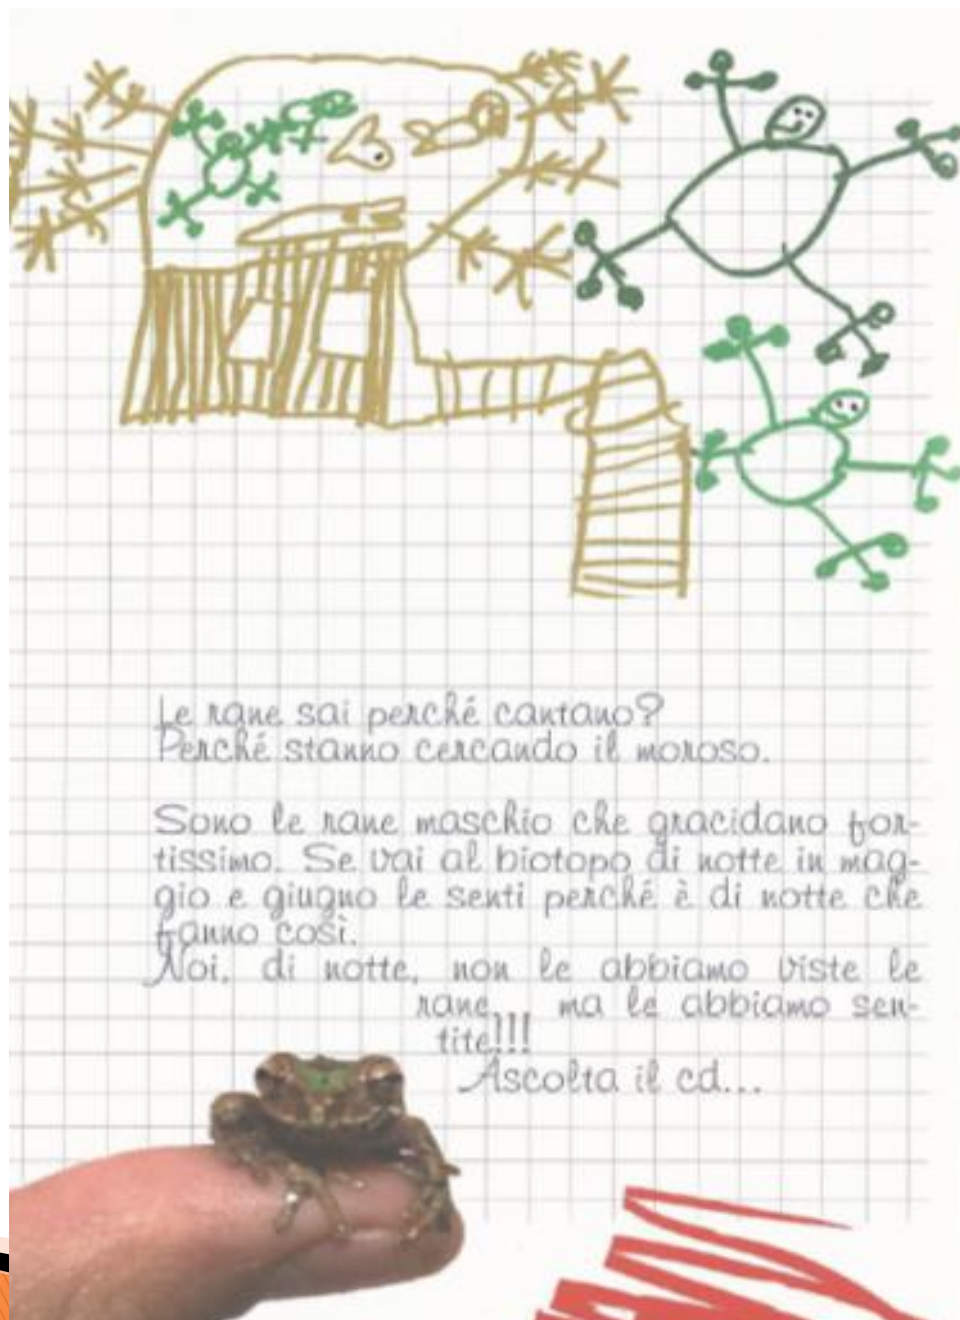 Le rane sai perché cantano?
Perché stanno cercando il moroso.
Sono le rane maschio che gracidano for-
tissimo. Se vai al biotopo di notte in mag-
gio e giugno le senti perché è di notte che
fanno così.
Noi, di notte, non le abbiamo viste le
rane... ma le abbiamo sen-
tite!!!
Ascolta il cd...